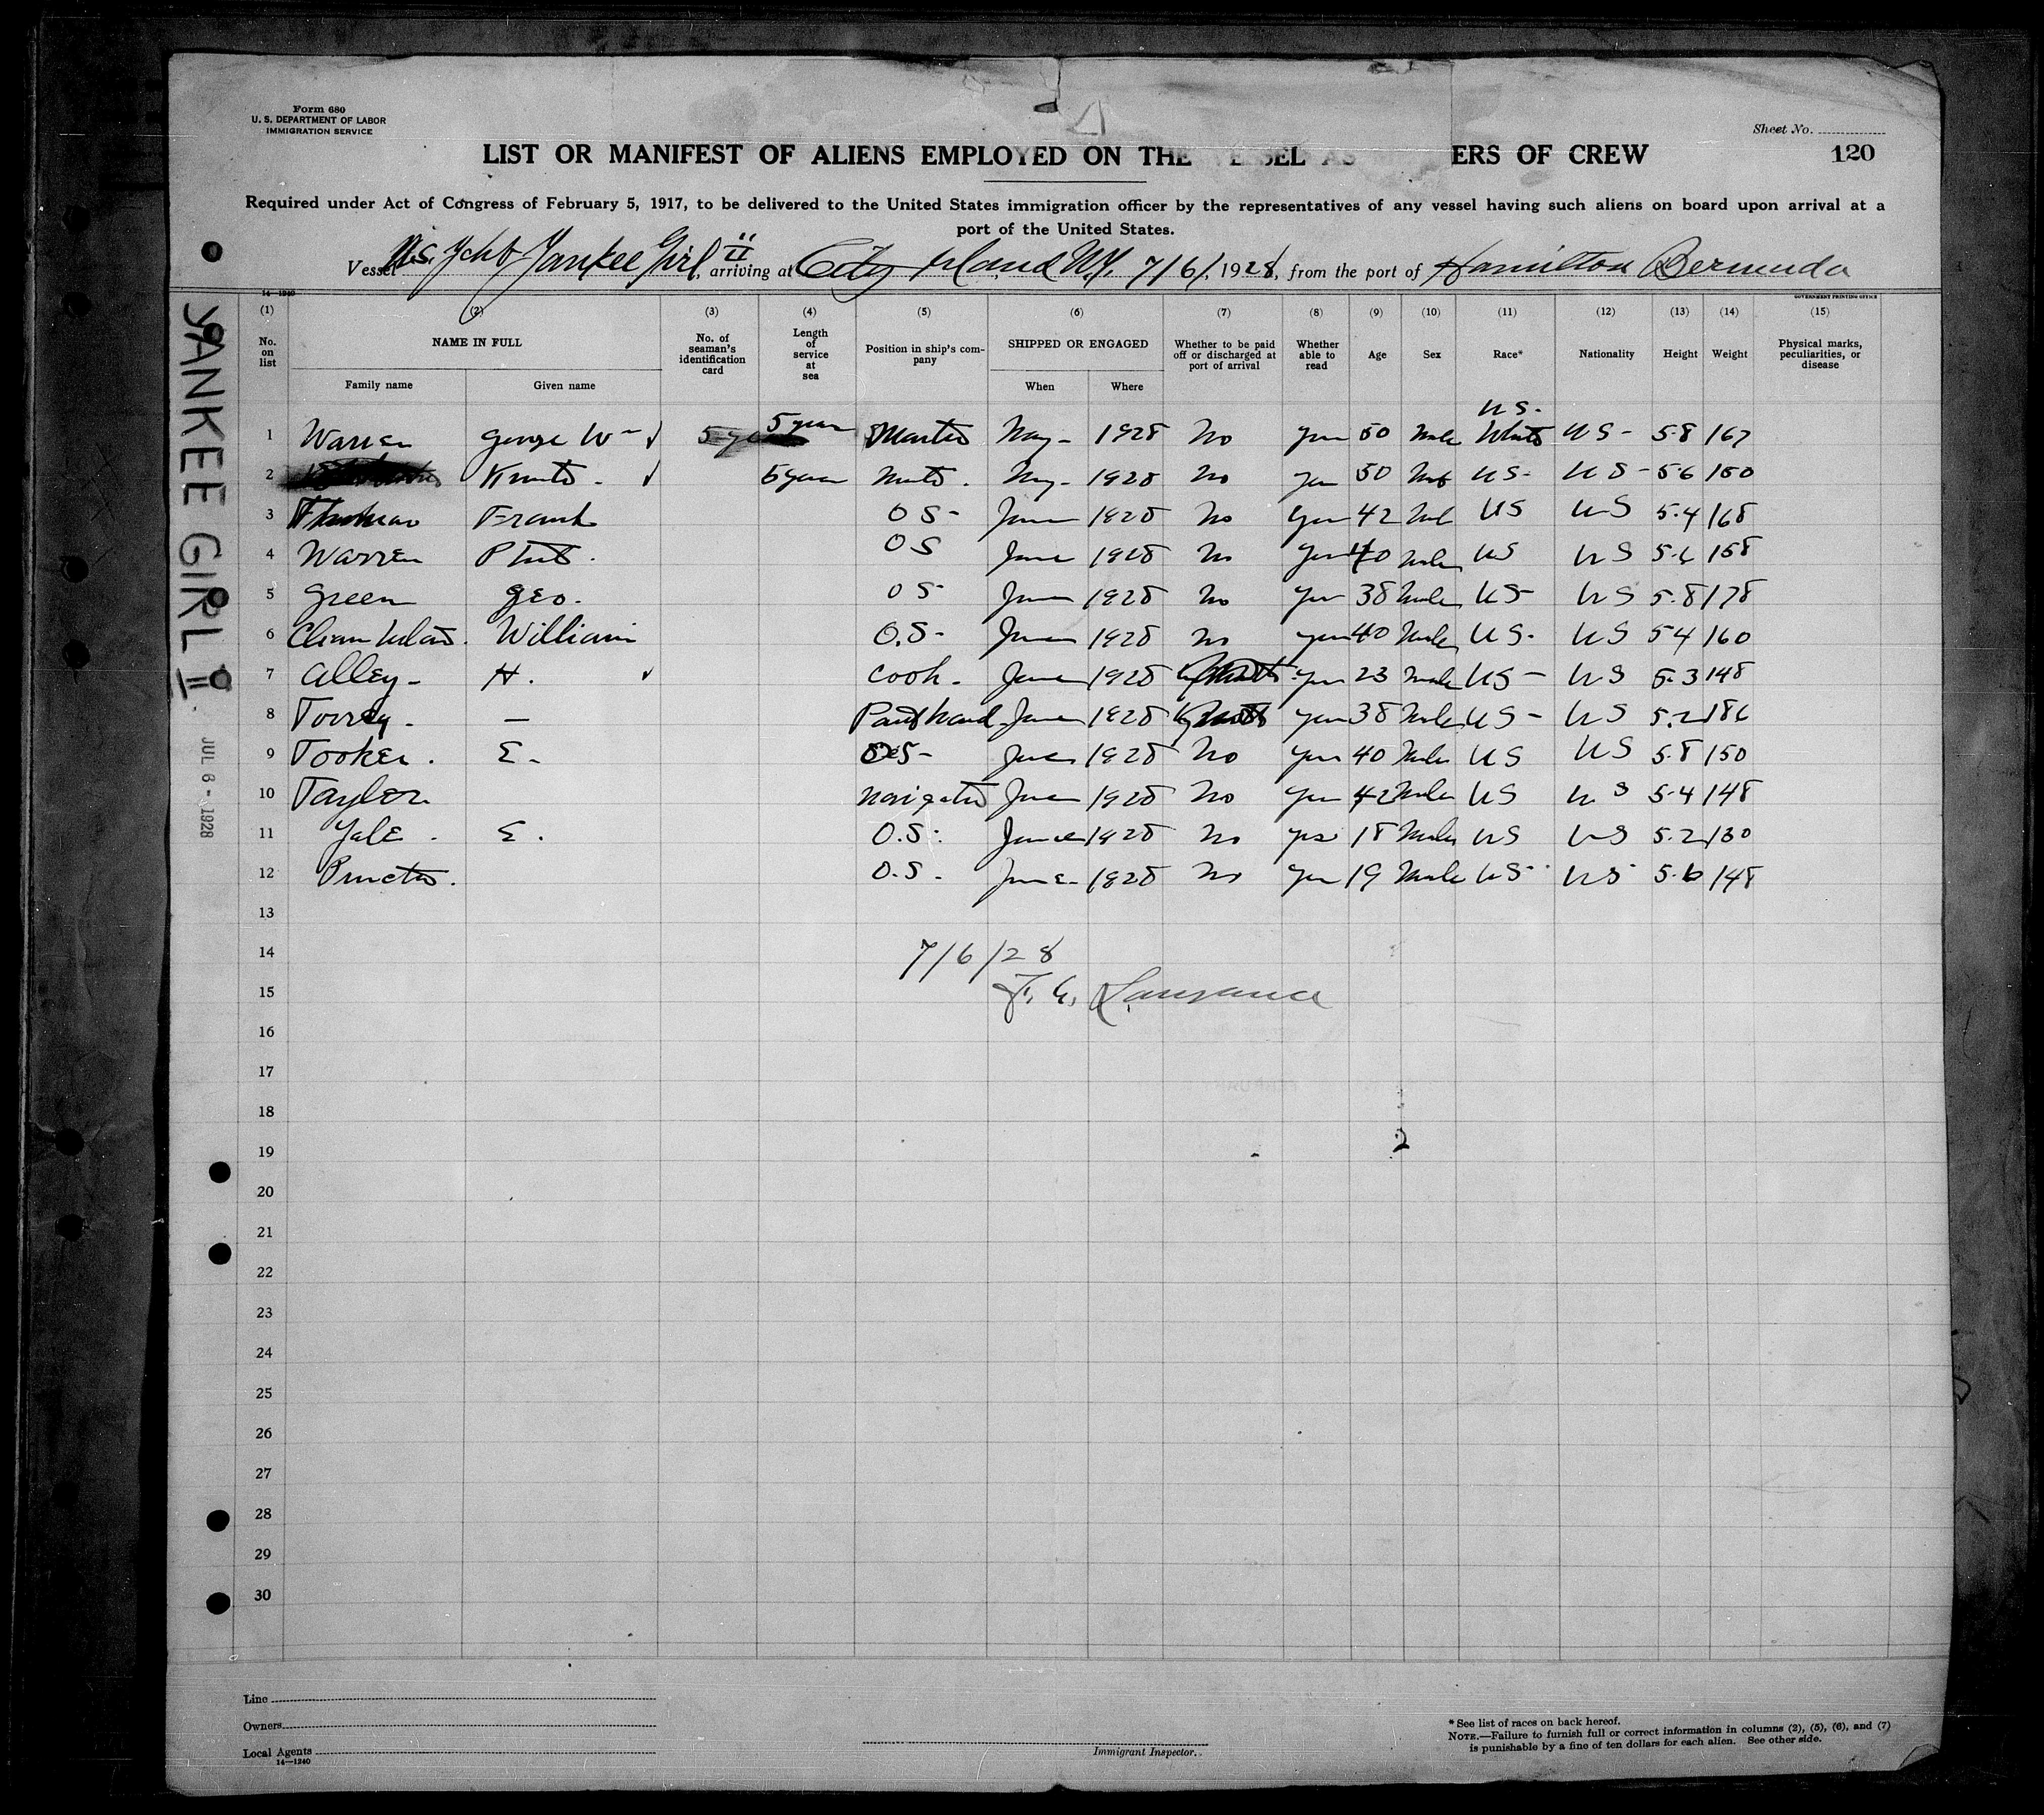 Form 680
U. S. DEPARTMENT OF LABOR
IMMIGRATION SERVICE
Sheet No.
LIST OR MANIFEST OF ALIENS EMPLOYED ON THE VESSEL AS ERS OF CREW
120
Required under Act of Congress of February 5, 1917, to be delivered to the United States immigration officer by the representatives of any vessel having such aliens on board upon arrival at a
port of the United States.
Vessel Yankee Girl II arriving at City Island N.Y. 7/6/, 1928, from the port of Hamilton Bermuda
14—1240
GOVERNMENT PRINTING OFFICE
(1) (2) (3) (4) (5) (6) (7) (8) (9) (10) (11) (12) (13) (14) (15)
No. on list NAME IN FULL No. of seaman's identification card Length of service at sea Position in ship's company SHIPPED OR ENGAGED Whether to be paid off or discharged at port of arrival Whether able to read Age Sex Race* Nationality Height Weight Physical marks, peculiarities, or disease
Family name Given name When Where
U S -
1 Warren George W 5 year Master May - 1928 No yes 50 male White U S - 5.8 167
2 5 year Mate . May - 1928 No yes 50 U S - U S - 5 6 150
3 Frank O S - June 1928 No yes 42 U S U S 5.4 168
4 Warren O S June 1928 No yes 40 male U S U S 158
5 Green Geo. O S - June 1928 No yes 38 male U S - U S 5.8 178
6 William O.S - June 1928 No yes 40 male U S - U S 5 4 160
7 Alley - H. cook - June 1928 yes 23 male U S - U S 5.3 148
8 Torrey - — June 1928 yes 38 male U S - U S 5.2 186
9 Tooker . E. - June 1928 No yes 40 male U S U S 5.8 150
10 Taylor navigator June 1928 No yes 42 male U S U S 5.4 148
11 Yale . E . O.S. June 1928 No yes 18 male U S U S 5.2 130
12 O.S. - June - 1928 No yes 19 male U S - U S 5.6 148
13
14 7/6/28
15
16
17
18
19
20
21
22
23
24
25
26
27
28
29
30
YANKEE GIRL II
JUL 6 - 1928
Line
Owners
Local Agents
14—1240
Immigrant Inspector.
* See list of races on back hereof.
NOTE.—Failure to furnish full or correct information in columns (2), (5), (6), and (7)
is punishable by a fine of ten dollars for each alien. See other side.